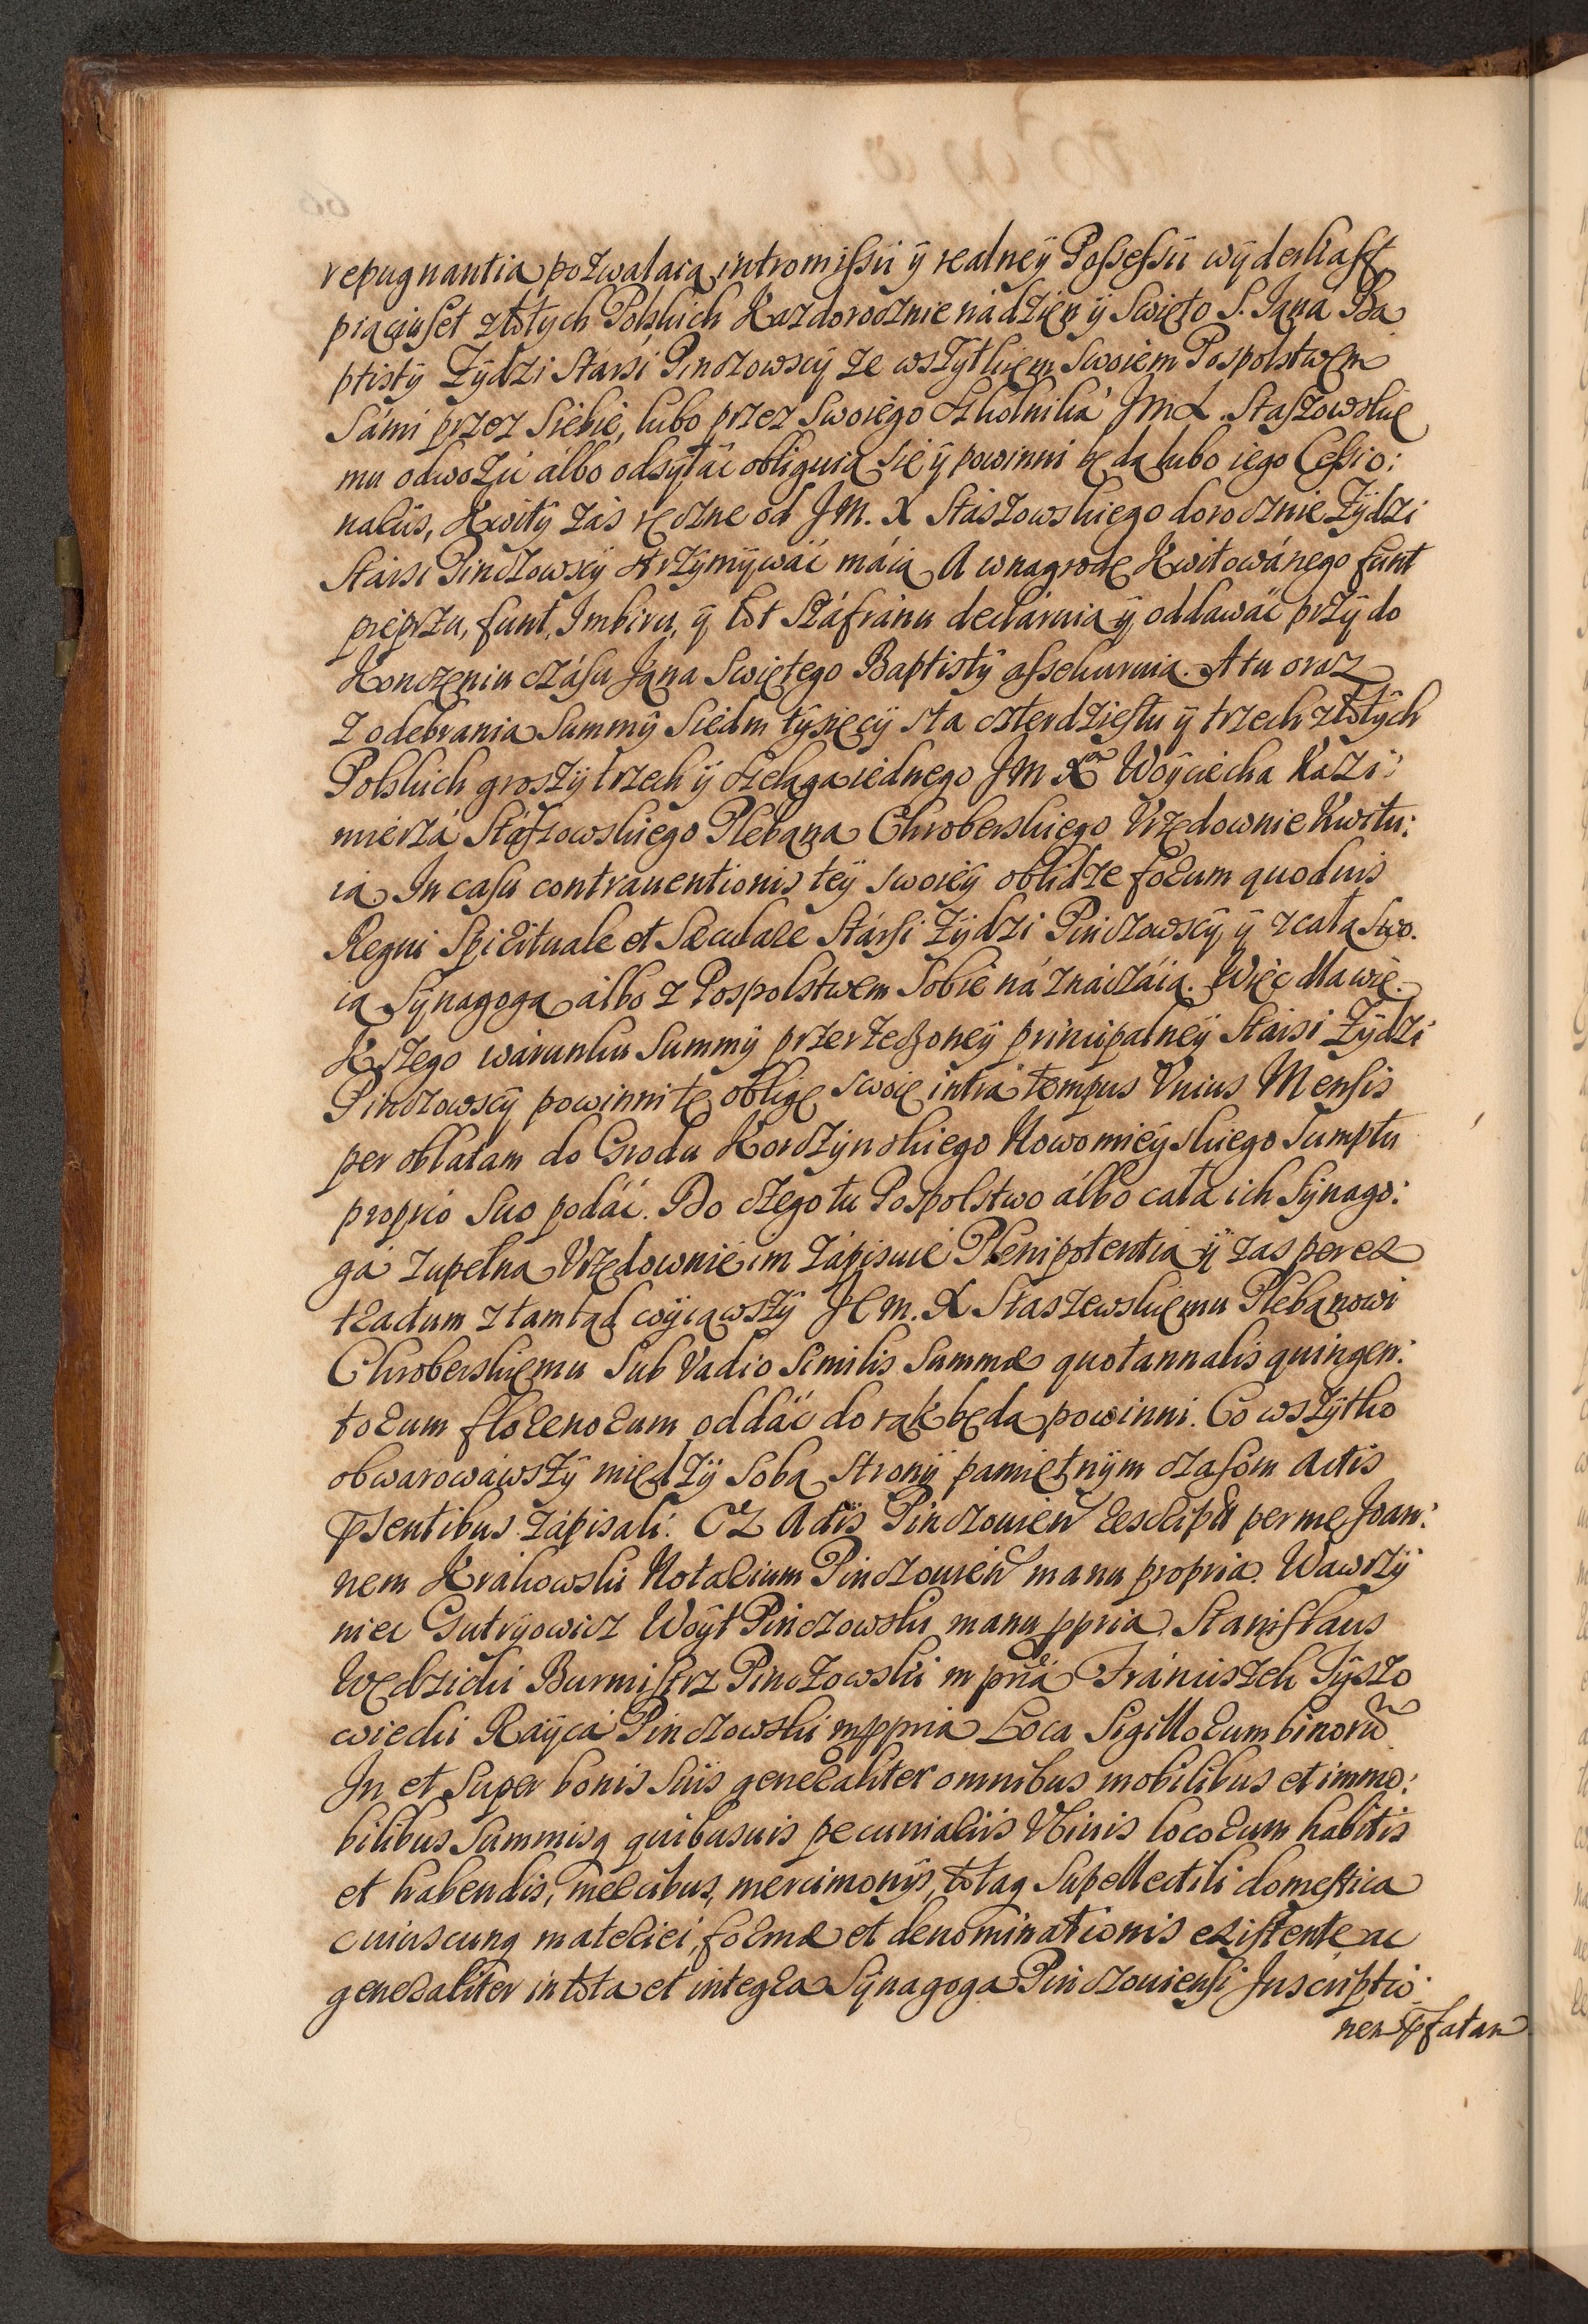 repugnantia pozwalaią intromissÿi ÿ realneÿ Possessÿi wÿderkaff
pięciuset złotych Polskich Kazdorocznie nádzień ÿ Swięto S. Jąna Ba
ptistÿ Zÿdzi Starsi Pinczowscÿ ze wszÿtkiem Swoiem Pospolstwem
Sámi przez Siebie, lubo przez Swoiego Szkolniká JmX. Staszowskie
mu odwozić álbo odsÿłáć obliguią się ÿ powinni będą lubo iego Cessio:
naliis, Kwitÿ záś ręczne od JM. X Stászowskiego dorocznie Zÿdzi
Stársi Pinczowscÿ otrzÿmÿwáć máią A wnagrodę Kwitowánego funt
pieprzu, funt Imbiru, ÿ łot Száfránu declaruią ÿ oddawáć przÿ do
Kończeniu czásu Jąna Swiętego Baptistÿ assekuruią. A tu oraz
Z odebrania Summÿ Siedm tÿsięcÿ sta czterdziestu ÿ trzech złotÿch
Polskich groszÿ trzech ÿ szeląga iednego JM Xa Woÿciecha Kázi:
mierzá Stászowskiego Plebąna Chroberskiego Vrzędownie Kwitu:
ią. In casu contrauentionis teÿ swoieÿ oblidze forum quoduis
Regni Spirituale et Sæculare Stársi Zÿdzi Pinczowscÿ ÿ zcałą Swo.
ią Sÿnagogą álbo z Pospolstwem Sobie náznáczáią. Więc dla wię.
Kszego wárunku Summÿ przerzeczoneÿ principalneÿ Stársi Zÿdzi
Pinczowscÿ powinni tę obligę swoię intra tempus Vnius Mensis
per oblatam do Grodu Korczÿnskiego Nowomieÿskiego Sumptu
proprio Suo podáć. Do czego tu Pospolstwo álbo cała ich Sÿnago:
gá zupełną Vrzędownie im Zápisuie Plenipotentią ÿ zas per ex
tractum ztamtąd wÿiąwszÿ Jem. X Staszewskiemu Plebąnowi
Chroberskiemu Sub Vadio Similis Summæ quotannalis quingen:
torum florenorum oddáć do rąk będą powinni. Co wszÿtko
obwarowáwszÿ międzÿ Sobą Stronÿ pamiętnÿm czasom Actis
pñsentibus zápisali. Ex Actis Pinczouien rescripũ per me Joan:
nem Krakowski Notarium Pinczouień manu propria. Wawrzÿ
niec Gutrÿowicz Woÿt Pinczowski manu ppria. Stanislaus
Wędzicki Burmistrz Pinczowski m ppria Fránciszek Tÿszo
wiecki Raÿcá Pinczowski mppria Loca Sigillorum binorũ
In et Super bonis Suis generaliter omnibus mobilibus et immo:
bilibus Summisq quibusuis pecuniariis Vbiuis locorum habitis
et habendis, mercibus, mercimonÿs, totaq Supellectili domestica
cuiuscunq materiei, formæ et denominationis existente ac
generaliter in tota et integra Sÿnagoga Pinczouiensi Inscriptio:
nem pfatam